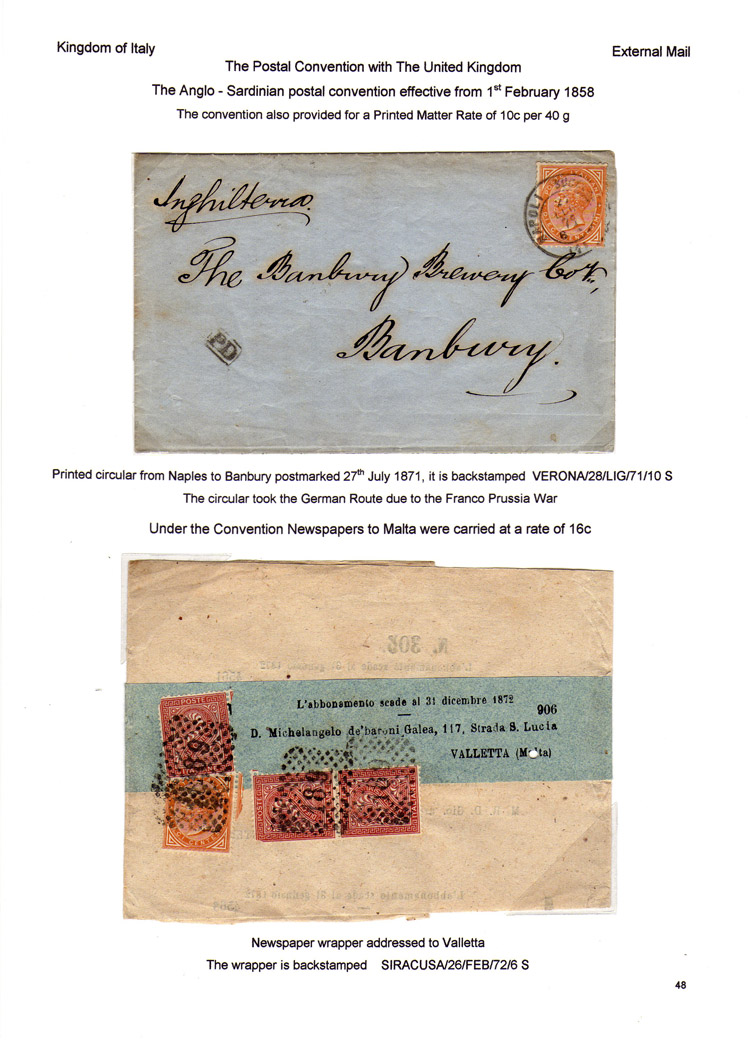 Kingdom of Italy
External Mail
The Postal Convention with The United Kingdom
The Anglo - Sardinian postal convention effective from 1st February 1858
The convention also provided for a Printed Matter Rate of 10c per 40 g
Inghilterra.
NAPOLI
The Banbury Brewery Coy,
Banbury.
PD
Printed circular from Naples to Banbury postmarked 27th July 1871, it is backstamped VERONA/28/LIG/71/10 S
The circular took the German Route due to the Franco Prussia War
Under the Convention Newspapers to Malta were carried at a rate of 16c
N. 302
POSTE
L'abbonamento scade al 31 dicembre 1872
906
D. Michelangelo de' baroni Galea, 117, Strada S. Lucia
VALLETTA (Ma ta)
POSTE
L'abbonamento scade al 31 gennaio 1872
Newspaper wrapper addressed to Valletta
The wrapper is backstamped SIRACUSA/26/FEB/72/6 S
48